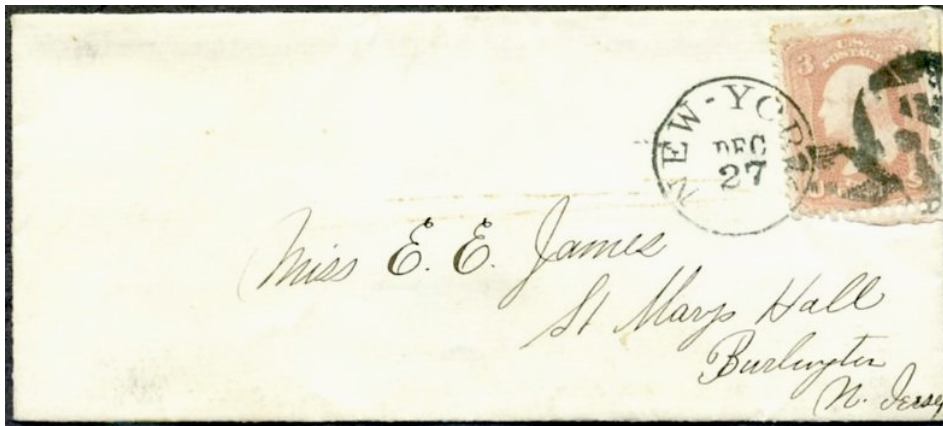 3 U.S. 3
POSTAGE
NEW-YORK
DEC
27
Miss E. E. James
St Marys Hall
Burlington
N. Jersey